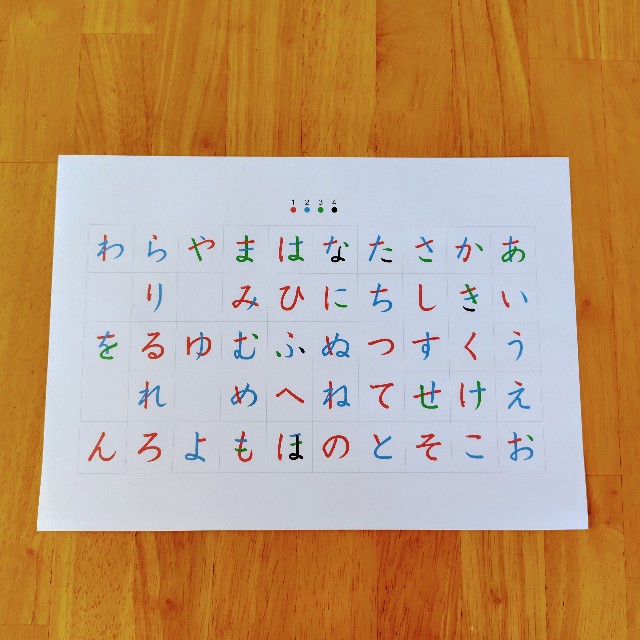 1 2 3 4
わ ら や ま は な た さ か あ
り み ひ に ち し き い
を る ゆ む ふ ぬ つ す く う
れ め へ ね て せ け え
ん ろ よ も ほ の と そ こ お